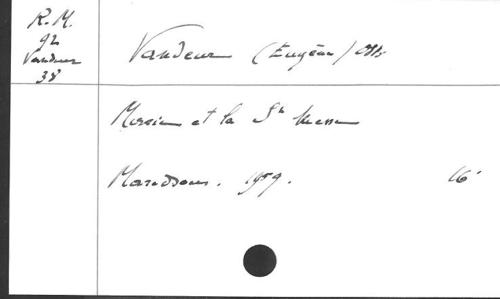 R.M.
92
Vandeur
38
Vandeur (Eugène) OSB
et la Ste Messe
Maredsous. 1959. 16°